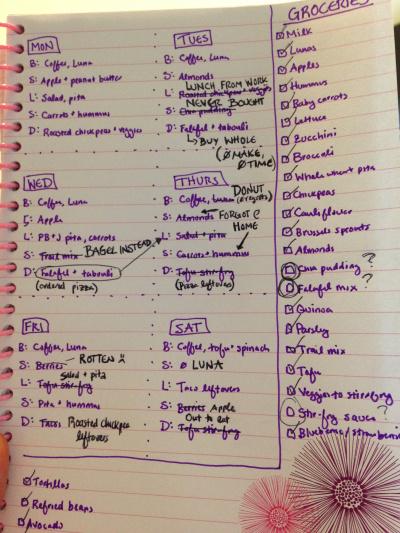 GROCERIES
MON
B: Coffee, Luna
S: Apple + peanut butter
L: Salad, pita
S: Carrots + hummus
D: Roasted chickpeas + veggies
TUES
B: Coffee, Luna
S: Almonds
LUNCH FROM WORK
L: Roasted chickpeas + veggies
NEVER BOUGHT
S: Chia pudding
D: Falafel + tabouli
↳ BUY WHOLE
(Ø MAKE,
Ø TIME)
WED
B: Coffee, Luna
S: Apple
L: PB + J pita, carrots
S: Trail mix BAGEL INSTEAD
D: Falafel + tabouli
(ordered pizza)
THURS
DONUT
B: Coffee, banana (@ rejects)
S: Almonds ← FORGOT @
HOME
L: Salad + pita
S: Carrots + hummus
D: Tofu stir-fry
(Pizza leftovers)
FRI
B: Coffee, Luna
S: Berries - ROTTEN
Salad + pita
L: Tofu stir-fry
S: Pita + hummus
D: Tacos Roasted chickpea
leftovers
SAT
B: Coffee, tofu + spinach
S: Ø LUNA
L: Taco leftovers
S: Berries Apple
Out to eat
D: Tofu stir-fry
Milk
Lunas
Apples
Hummus
Baby carrots
Lettuce
Zucchini
Broccoli
Whole wheat pita
Chickpeas
Cauliflower
Brussels sprouts
Almonds
Chia pudding ?
Falafel mix ?
Quinoa
Parsley
Trail mix
Tofu
Veggies to stir-fry
Stir-fry sauce ?
Blueberries/strawberries
Tortillas
Refried beans
Avocado